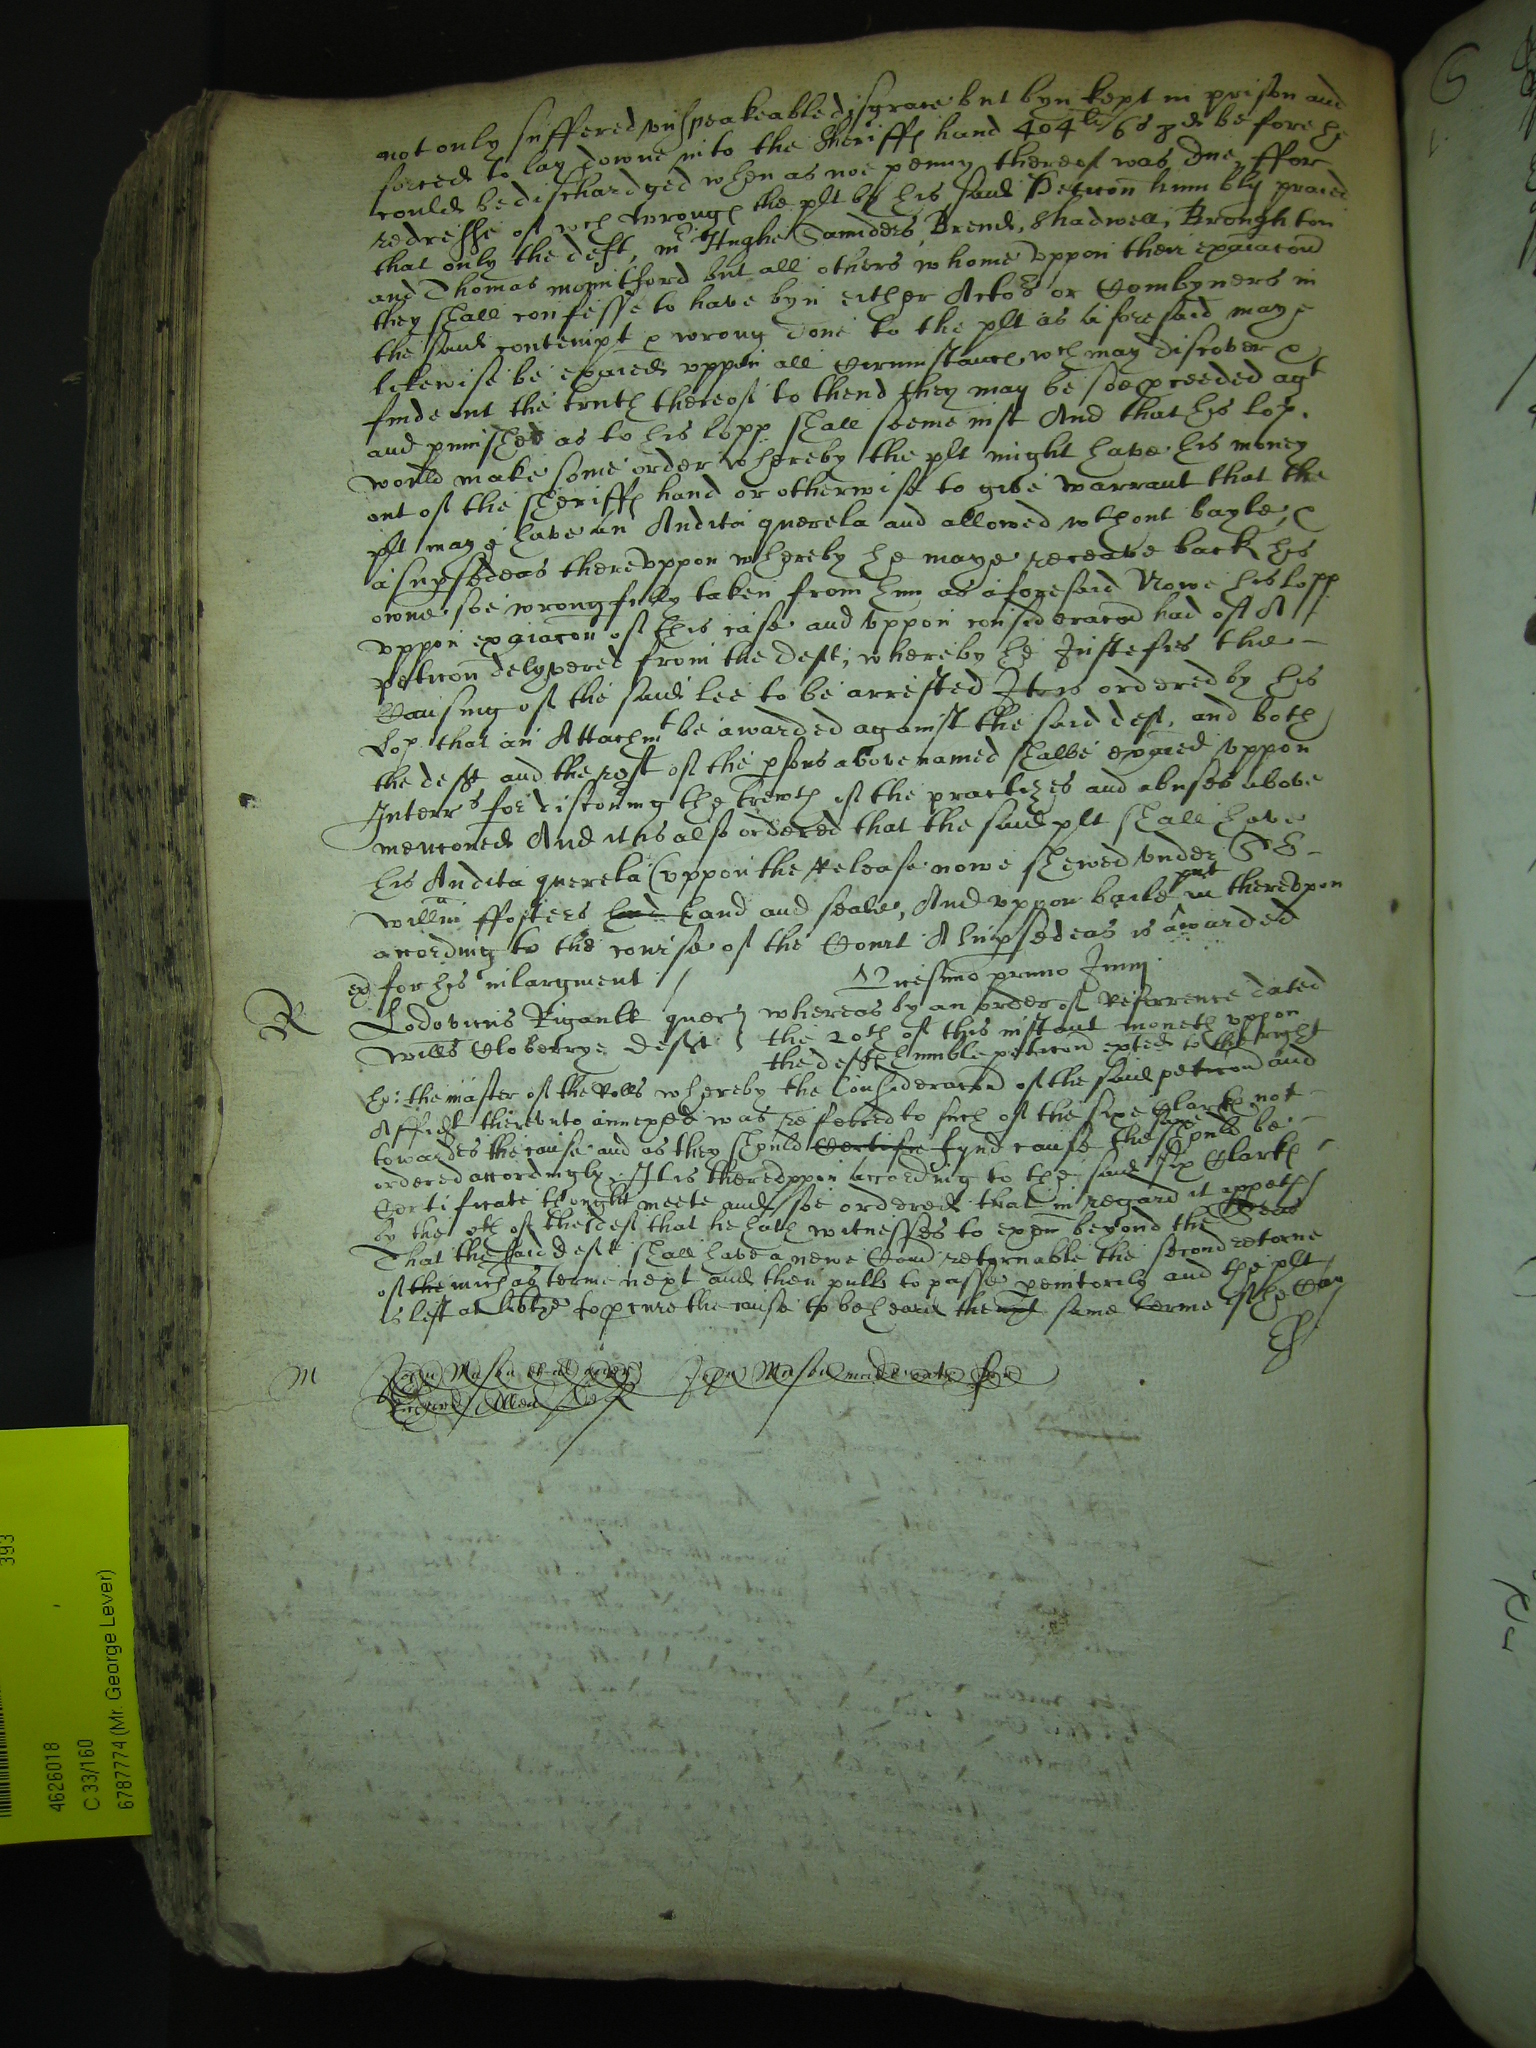 not only suffered unspeakeable disgrace but byn kept in prison and
forced to lay downe into the Sheriffs hand 404li 6s 8d before he
could be dischardged when as noe penny thereof was due, ffor
redresse of wch wrongs the plt by his said Peticon humbly praied
that only the deft, mr Hughe Saunders, Brend, Shadwell, Broughton
and Thomas mountford but all others whome uppon their exaiacon
they shall confesse to have byn either Actors or Combyners in
the said contempt & wrong done to the plt as aforesaid maye
likewise be exaied uppon all Circumstances wch may discover &
finde out the truth thereof to thend they may be soe pceeded agt
and punished as to his lopp shall seeme iust And that his lop.
would make some order whereby the plt might have his money
out of the sheriffs hand or otherwise to give warrant that the
plt maye have an Audita querela and allowed wthout bayle, &
a supsedeas thereuppon whereby he maye receave back his
owne soe wrongfully taken from him as aforesaid Nowe his lopp
uppon exaiacon of this case and uppon consideracon had of A
peticon delyvered from the deft, whereby he Justefies the
Causing of the said lee to be arrested It is ordered by his
Lop. that an Attachmt be awarded against the said deft. and both
the deft and the rest of the psons above named shalbe exaied uppon
Interrs for discouing the trewth of the practizes and abuses above
mencioned And it is also ordered that the said plt shall have
his Audita querela (uppon the release nowe shewed under Sr
Willm ffosters hand hand and seale, And uppon baile put in thereupon
according to the course of the Court A supsedeas is awarded
ex for his inlargment
Vicesimo primo Junij
R Lodovicus Rigault quer whereas by an order of Referrence dated
Wills Clobery deft the 20th of this instant moneth uppon
the defts humble peticon exted to the right
ho: the master of the Rolls whereby the Consideracon of the said peticon and
Affidt thereunto annexed was referred to such of the sixe Clarks not
towardes the cause and as they should Certifie fynd cause the same should be
ordered accordingly. It is thereuppon according to the said six Clarks
Certificate thought meete and soe ordered that in regard it appeth
by the oth of the deft that he hath witnesses to exem beyond the Seas
That the said deft shall have a newe Com retornable the second retorne
of the michas terme next and then publ to passe pemtorily and the plt
is left at libtye to pcure the cause to be heard the same terme if he Can
M John Mason et al quer John Mason made oath
Richard Allen deft
393
4626018
C 33/160
6787774 (Mr. George Lever)